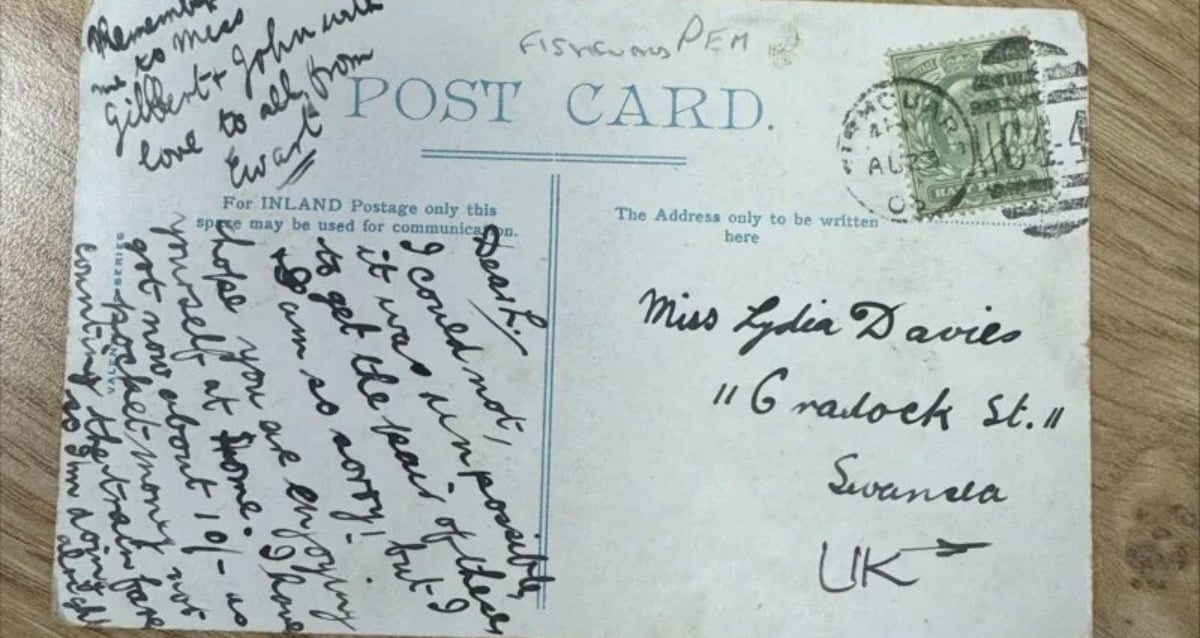 Remember
me to Miss
Gilbert + John with
love to all from
Ewart
FISHGUARD PEM
POST CARD.
For INLAND Postage only this
space may be used for communication.
The Address only to be written
here
AU 23
SERIES
Dear L,
I could not,
it was unpossible,
to get the pair of these
I am so sorry! but I
hope you are enjoying
yourself at Home. I have
got now about 10/- as
pocket-money not
counting the train fare
so I'm doing
alright
Miss Lydia Davies
"Cradock St."
Swansea
UK